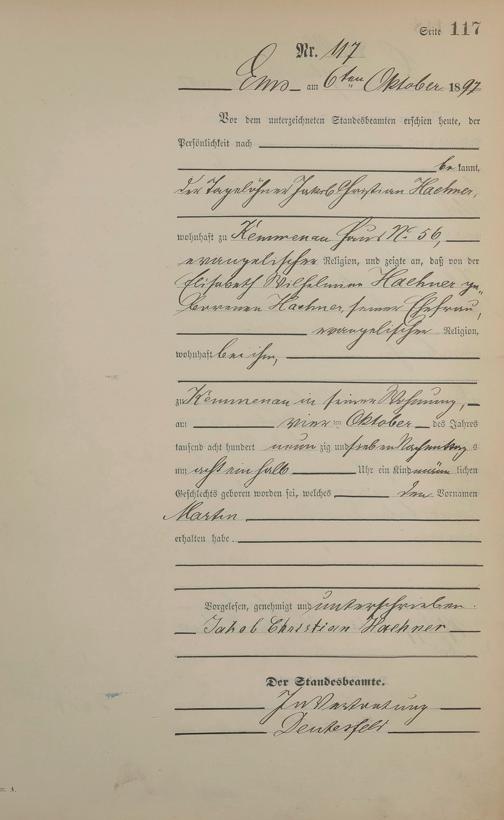 Seite 117
Nr. 117
Ems am 6ten Oktober 1897
Vor dem unterzeichneten Standesbeamten erschien heute, der
Persönlichkeit nach
bekannt,
der Tagelöhner Jakob Christian Haehner,
wohnhaft zu Kemmenau Haus No 56,
evangelischer Religion, und zeigte an, daß von der
Elisabeth Wilhelmine Haehner ge„
borenen Haehner, seiner Ehefrau,
evangelischer Religion,
wohnhaft bei ihm,
zu Kemmenau in seiner Wohnung,
am vierten Oktober des Jahres
tausend acht hundert neunzig und sieben Nachmittags
um acht ein halb Uhr ein Kind männlichen
Geschlechts geboren worden sei, welches den Vornamen
Martin
erhalten habe.
Vorgelesen, genehmigt und unterschrieben
Jakob Christian Haehner
Der Standesbeamte.
In Vertretung